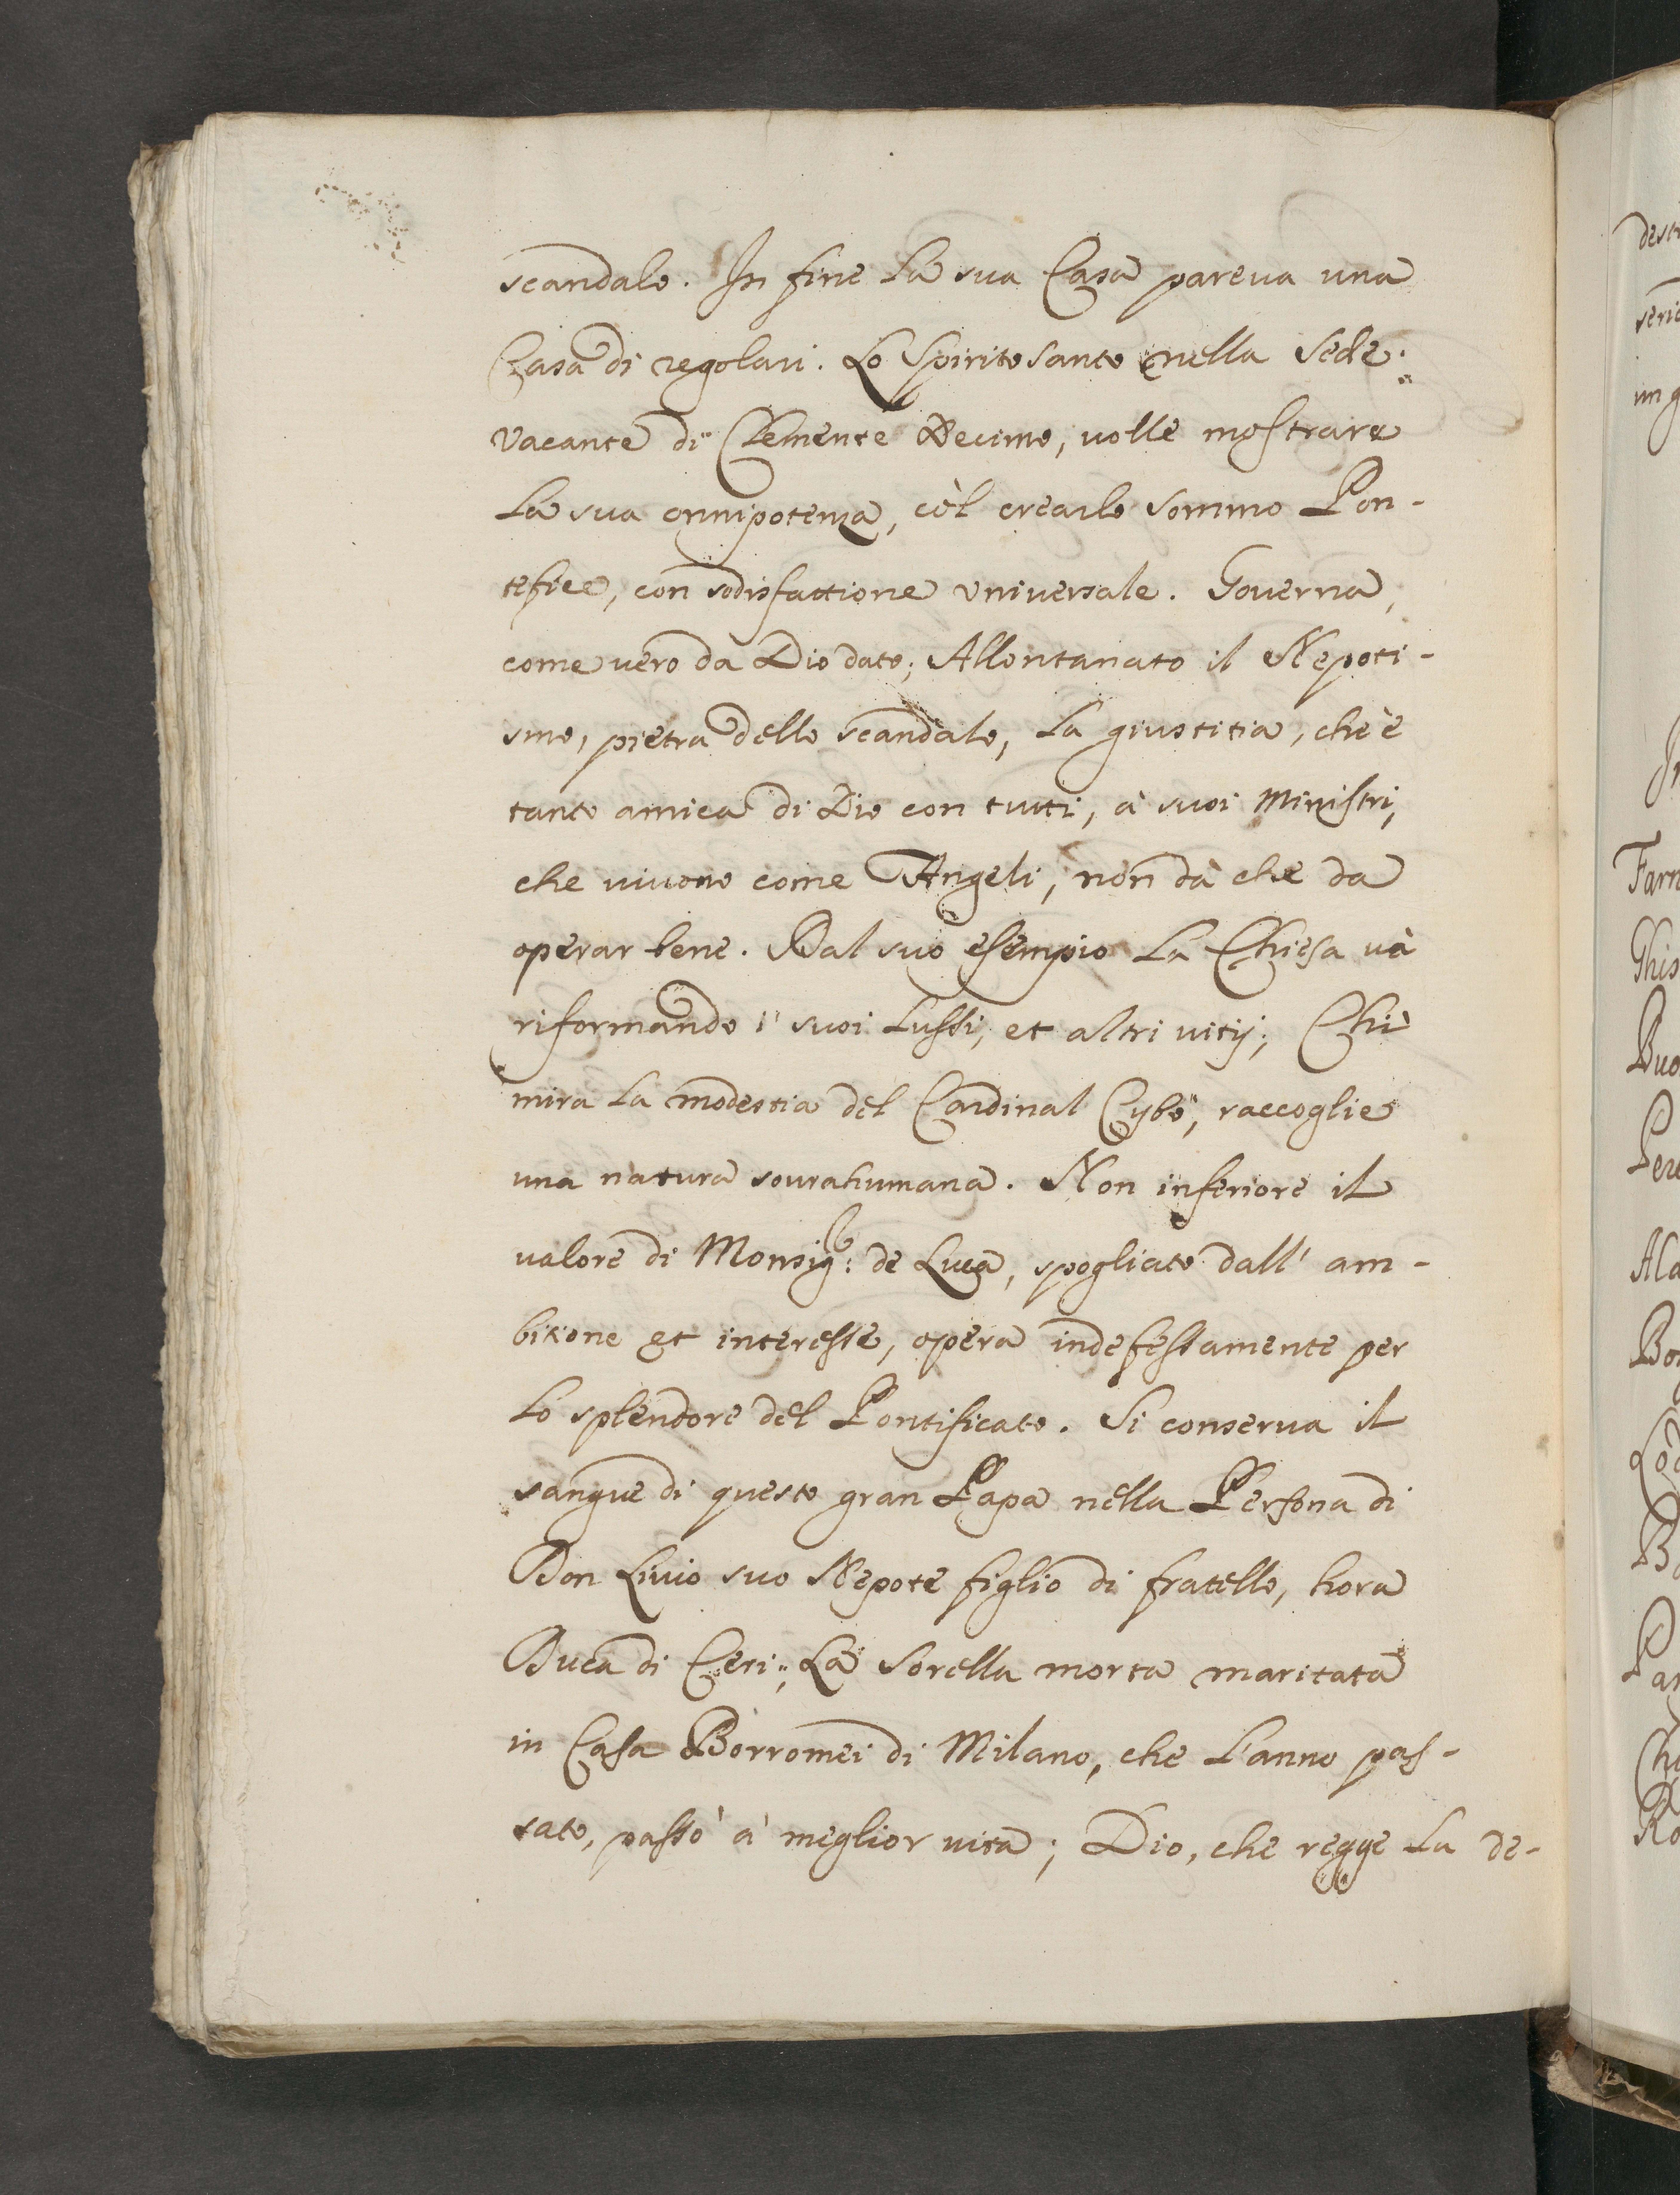 scandalo. In fine la sua Casa pareva una
Casa di regolari. Lo Spirito santo nella Sede
vacante di Clemente Decimo, volle mostrare
la sua onnipotenza, cò'l crearlo sommo Pon-
tefice, con sodisfattione universale. Governa,
come vero da Dio dato; Allontanato il Nepoti-
smo, pietra dello scandalo, la giustitia, che è
tanto amica di Dio con tutti, à suoi Ministri,
che vivono come Angeli, non dà che da
operar bene. Dal suo esempio la Chiesa và
riformando i suoi lussi, et altri vitij; Chi
mira la modestia del Cardinal Cybò, raccoglie
una natura sourahumana. Non inferiore il
valore di Monsig.: de Luca, spogliato dall' am-
bitione et interesse, opera indefessamente per
lo splendore del Pontificato. Si conserva il
sangue di questo gran Papa nella Persona di
Don Livio suo Nepote figlio di fratello, hora
Duca di Ceri; La Sorella morta maritata
in Casa Borromei di Milano, che l'anno pas-
sato, passò à meglior vita; Dio, che regge la de-